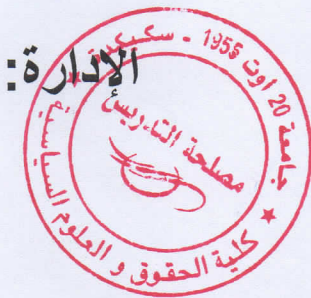 الإدارة:
جامعة 20 اوت 1955 - سكيكدة
مصلحة التدريس
★ كلية الحقوق و العلوم السياسية